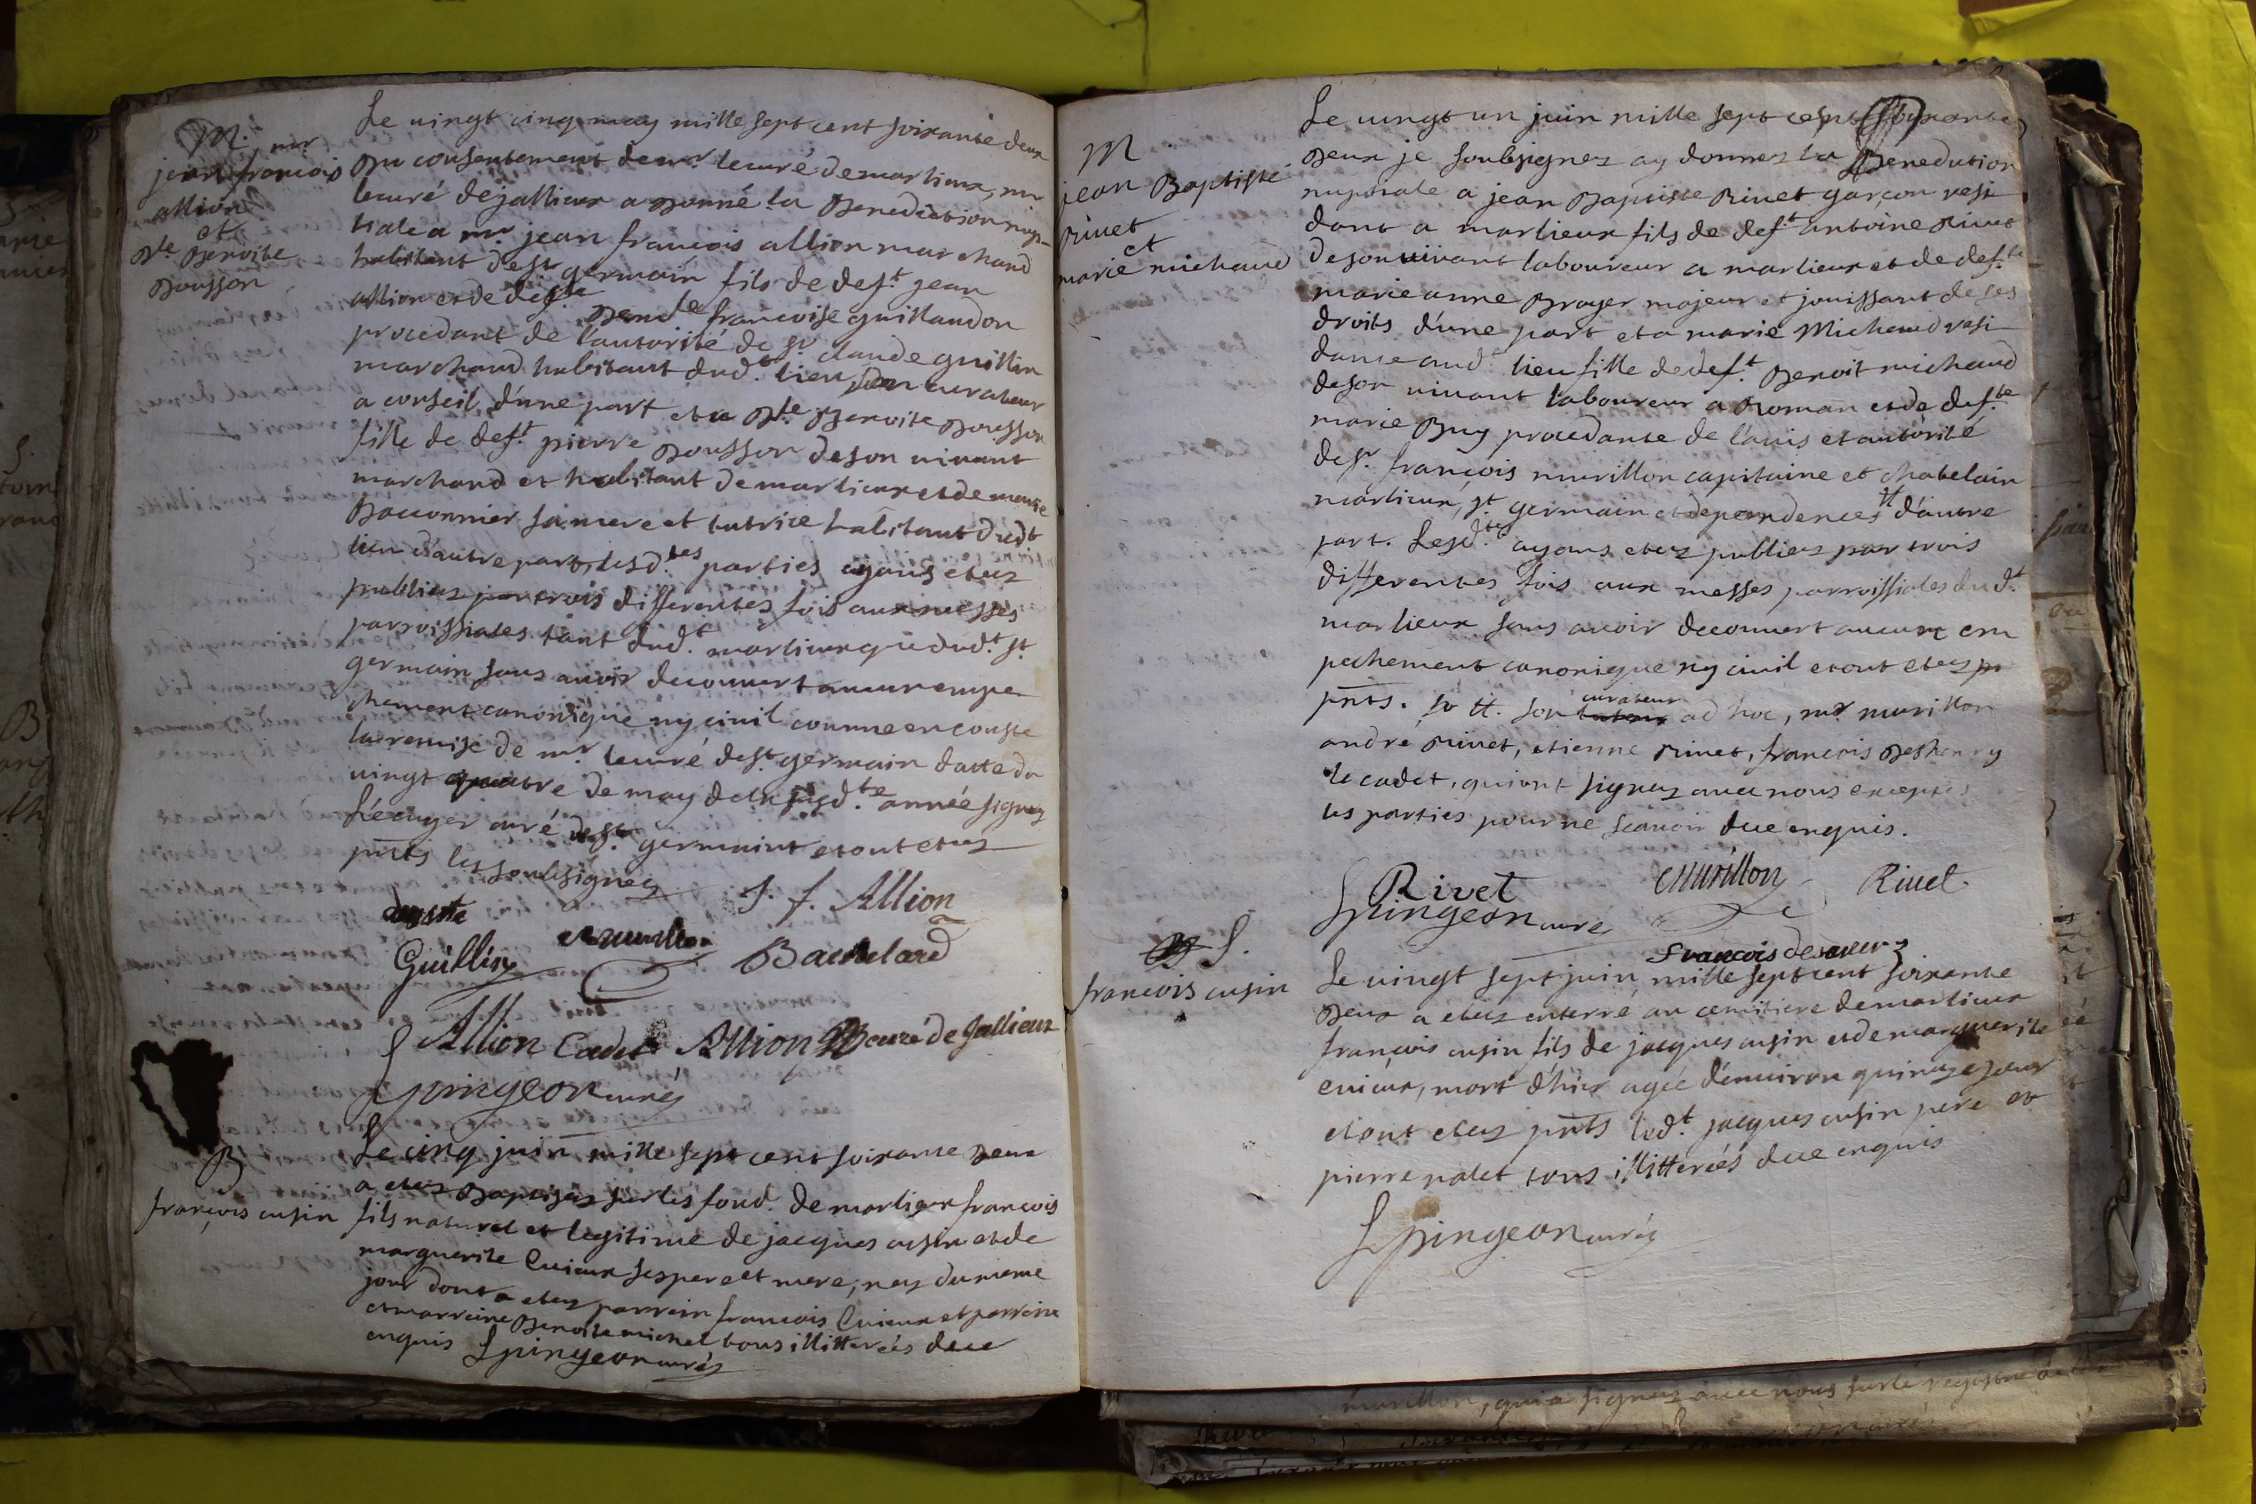 M.
mr
jean françois
allion
et
Dle Benoite
Bousson
Le vingt cinq may mille sept cent soixante deux
Du consentement de mr le curé de marlieux, mr
le curé de jallieux a Donné la Benediction nup-
tiale a mr jean françois allion marchand
habitant de st germain fils de deft. jean
allion et de defte françoise guillaudon
procedant de l'autorité de sr. claude guillin
marchand habitant dud.t lieu son curateur
a conseil d'une part et a Dle. Benoite Bousson
fille de deft. pierre Bousson de son vivant
marchand et habitant de marlieux et de marie
Baconnier sa mere et tutrice habitant dudt
lieu d'autre part, lesd.tes parties ayans etez
publiez par trois differentes fois aux messes
parroissiales tant dud.t marlieux que dud.t st.
germain sans avoir decouvert aucun empe-
chement canonique ny civil comme en conste
la remise de mr le curé de st. germain datte du
vingt quatre de may de la susd.te année signez
curé de st. germain et ont etez
pnts les soubsignez
J. f. Allion
Guillin
Bachelard
Allion Cadet Allion curé de Jallieux
Spingeon curéz
B
françois cusin
Le cinq juin mille sept cent soixante deux
a etez Baptisez sur les fond. de marlieux françois
fils naturel et legitime de jacques cusin et de
marguerite Cuieux ses pere et mere, nez du meme
jour dont a etez parrein françois Cuieux et parreine
et marreine Benoite michel tous illitterés due
enquis Spingeon curéz
M
jean Baptiste
Rivet
et
marie michaud
Le vingt un juin mille sept cent soixante
Deux je soubsignez ay donnez la Benediction
nupsiale a jean Baptiste Rivet garçon resi
dant a marlieux fils de deft antoine Rivet
de son vivant laboureur a marlieux et de defte
marie anne Broyer majeur et jouissant de ses
droits d'une part et a marie Michaud resi
dante aud.t lieu fille de deft. Benoit michaud
de son vivant laboureur a Roman et de defte
marie Buy procedante de l'avis et autorité
de sr. françois murillon capitaine et chatelain
marlieux, st. germain et dependences # d'autre
part. Lesd.tes ayans etez publiez par trois
differentes fois aux messes parroissiales dud.t
marlieux sans avoir decouvert aucun em
pechement canonique ny civil et ont etez pr
pnts. # son curateur ad hoc, mr murillon
andré Rivet, etienne Rivet, françois
le cadet, qui ont signez avec nous exceptes
les parties pour ne scavoir due enquis.
Rivet
murillon
Rivet
Spingeon curéz
françois
S.
françois cusin
Le vingt sept juin mille sept cent soixante
Deux a etez enterré au cemitiere de marlieux
françois cusin fils de jacques cusin et de marguerite
cuieux, mort d'hier agée d'environ quinze jour
et ont etez pnts led.t jacques cusin pere et
pierre nalet tous illitterés due enquis
Spingeon curéz
murillon, qui a signez avec nous sur le registre